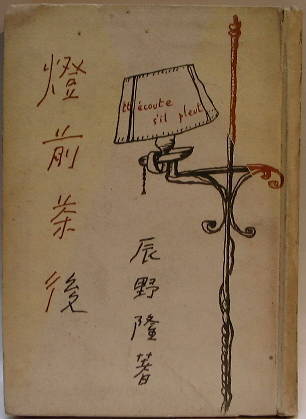 燈前茶後
辰野隆著
et écoute
s'il pleut